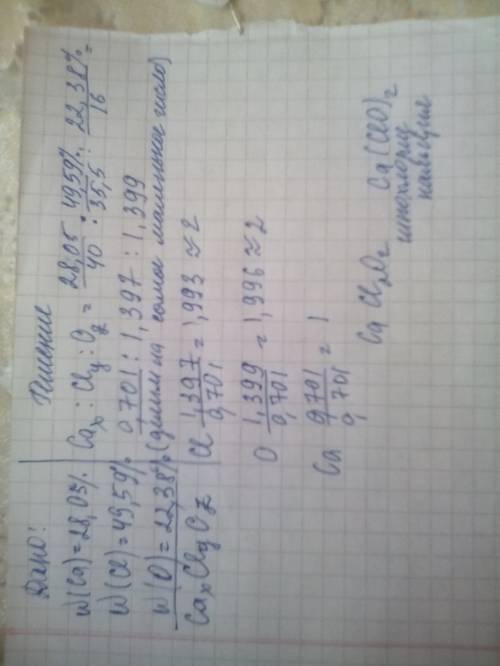 Дано:
W(Ca)=28,05%
W(Cl)=49,59%
W(O)=22,38%
CaxClyOz
Решение
Cax : Cly : Oz = 28,05/40 : 49,59%/35,5 : 22,38%/16 =
0,701 : 1,397 : 1,399
(делим на самое маленькое число)
Cl 1,397/0,701 = 1,993 ≈ 2
O 1,399/0,701 = 1,996 ≈ 2
Ca 0,701/0,701 = 1
CaCl2O2 Ca(ClO)2
гипохлорид
кальция